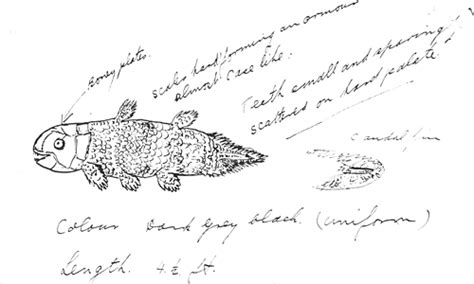 Boney plates.
scales hard forming an armour
almost case like.
Teeth small and sparing
scattered on hard palate
Caudal fin
Colour Dark grey black. (uniform)
Length. 4½ ft.